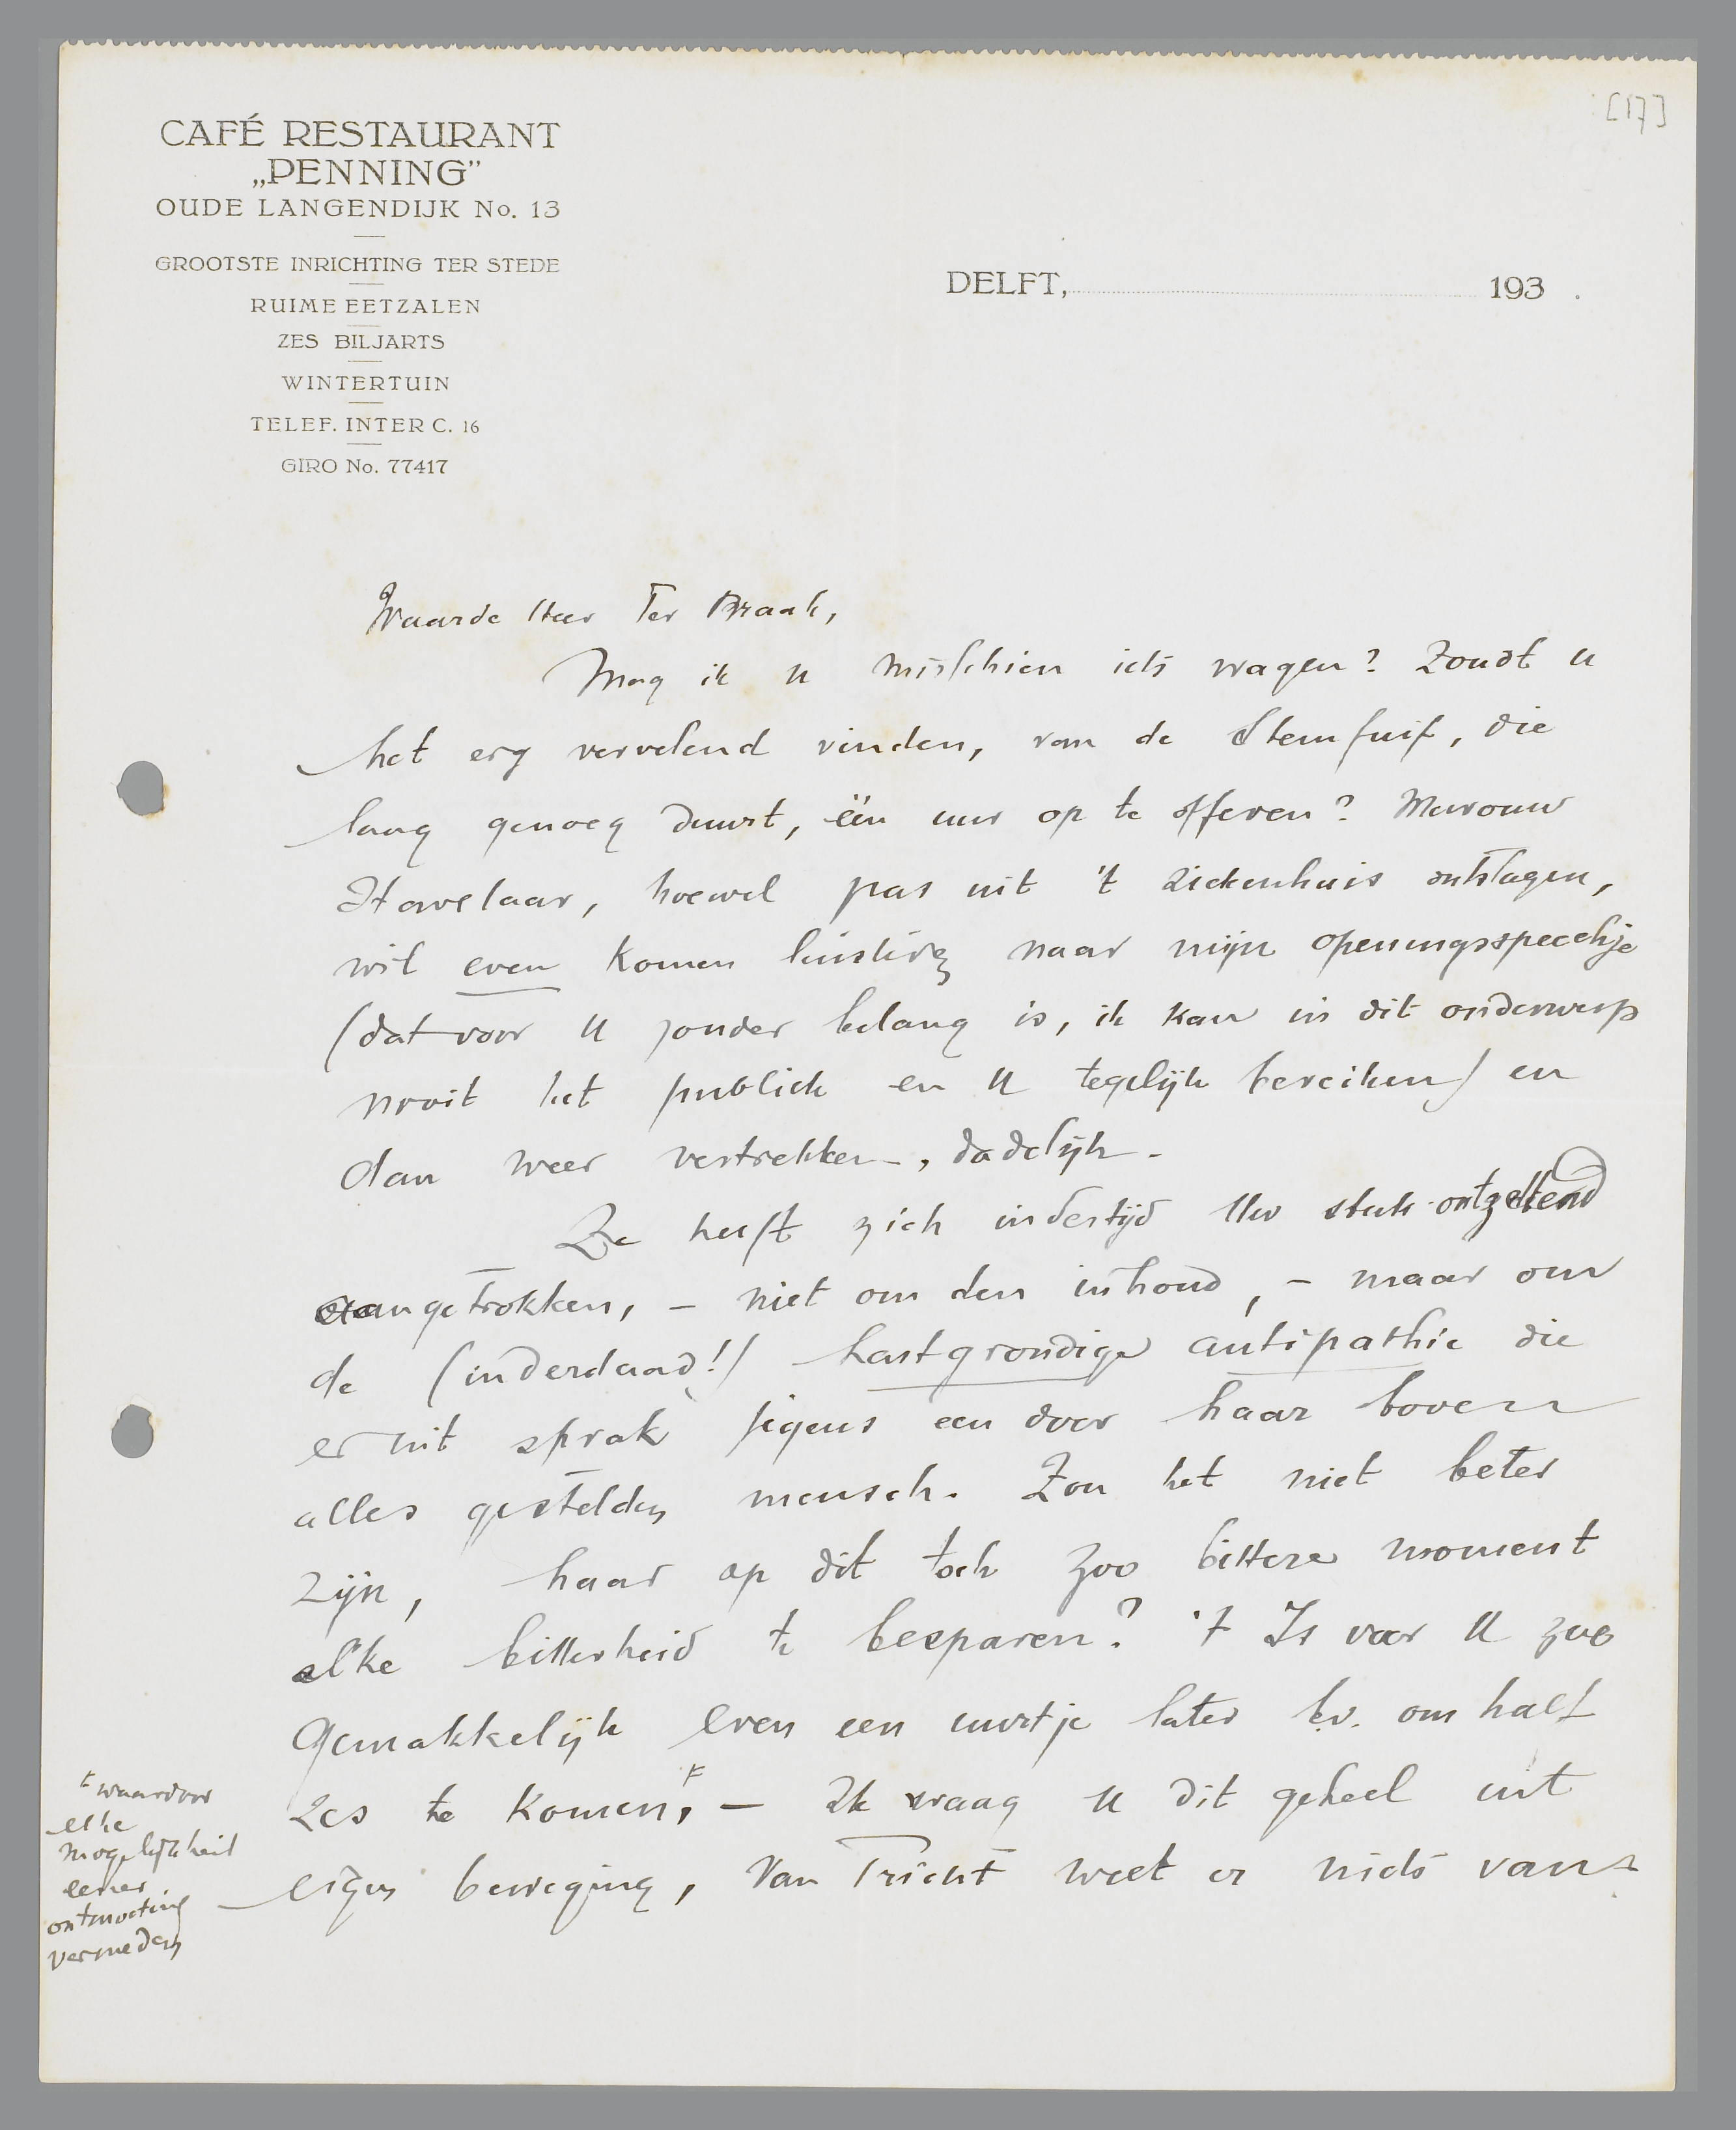 [17]
CAFÉ RESTAURANT
„PENNING”
OUDE LANGENDIJK No. 13
GROOTSTE INRICHTING TER STEDE
RUIME EETZALEN
ZES BILJARTS
WINTERTUIN
TELEF. INTERC. 16
GIRO No. 77417
DELFT, 193 .
Waarde Heer Ter Braak,
Mag ik u misschien iets vragen? Zoudt u
het erg vervelend vinden, van de Stemfuif, die
lang genoeg duurt, één uur op te offeren? Mevrouw
Havelaar, hoewel pas uit 't ziekenhuis ontslagen,
wil even komen luisteren naar mijn openingsspeechje
(dat voor U zonder belang is, ik kan in dit onderwerp
nooit het publiek en U tegelijk bereiken) en
dan weer vertrekken, dadelijk.
Ze heeft zich indertijd Uw stuk ontzettend
aangetrokken, – niet om den inhoud, – maar om
de (inderdaad!) hartgrondige antipathie die
er uit sprak jegens een door haar boven
alles gestelden mensch. Zou het niet beter
zijn, haar op dit toch zoo bittere moment
elke bitterheid te besparen? 't Is voor U zoo
gemakkelijk even een uurtje later bv. om half
zes te komen, – Ik vraag U dit geheel uit
eigen beweging, Van Tricht weet er niets van.
waardoor
elke
mogelijkheid
eener
ontmoeting
vermeden